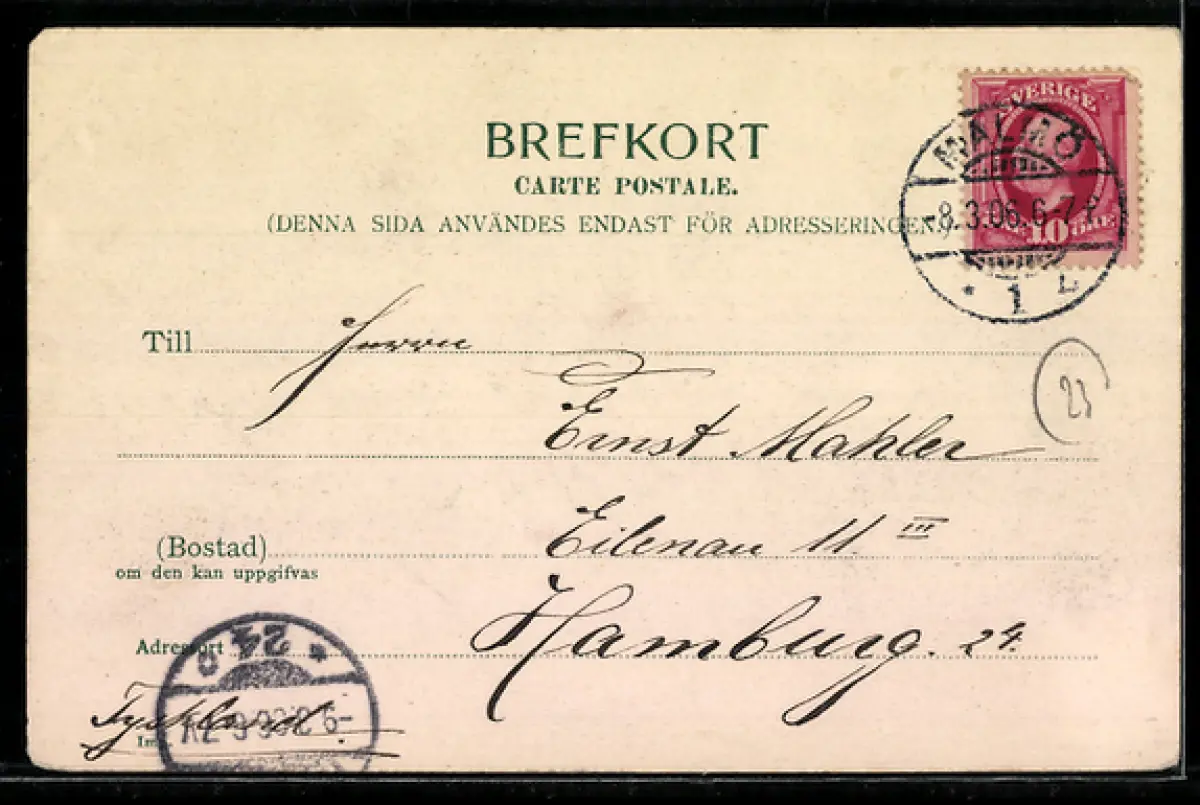 BREFKORT
CARTE POSTALE.
(DENNA SIDA ANVÄNDES ENDAST FÖR ADRESSERINGEN.)
SVERIGE
10 ÖRE
MALMÖ
-8.3.06.6-7 F
* 1 L
23
Till Herrn
Ernst Mahler
(Bostad) Eilenau 11 III
om den kan uppgifvas
Adressort Hamburg. 24.
Tyskland.
24